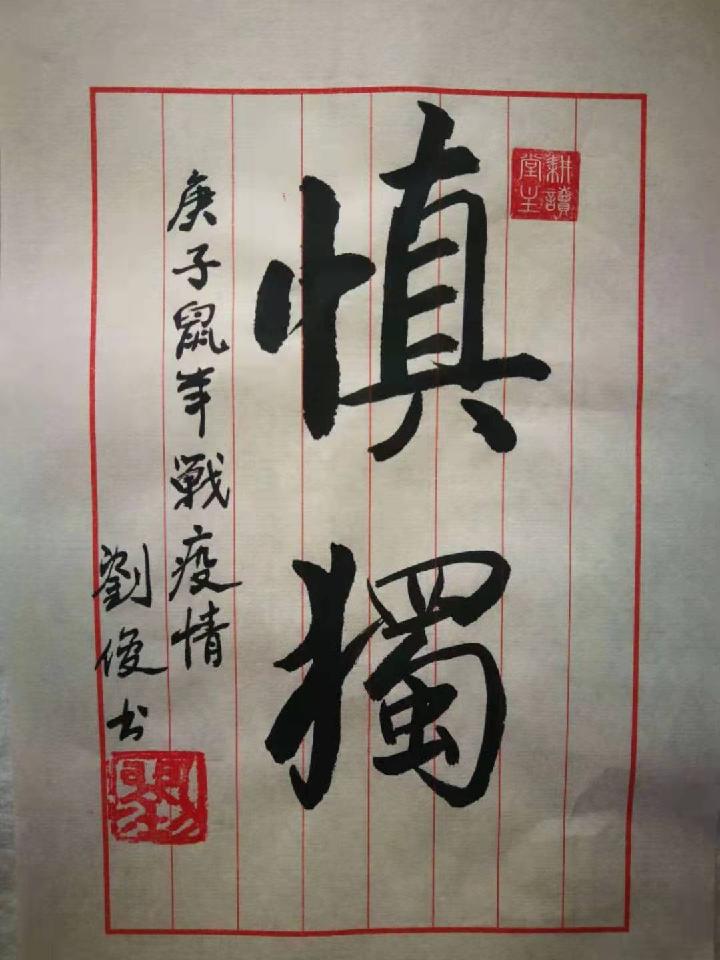 耕讀堂主
慎獨
庚子鼠年戰疫情
劉俊书